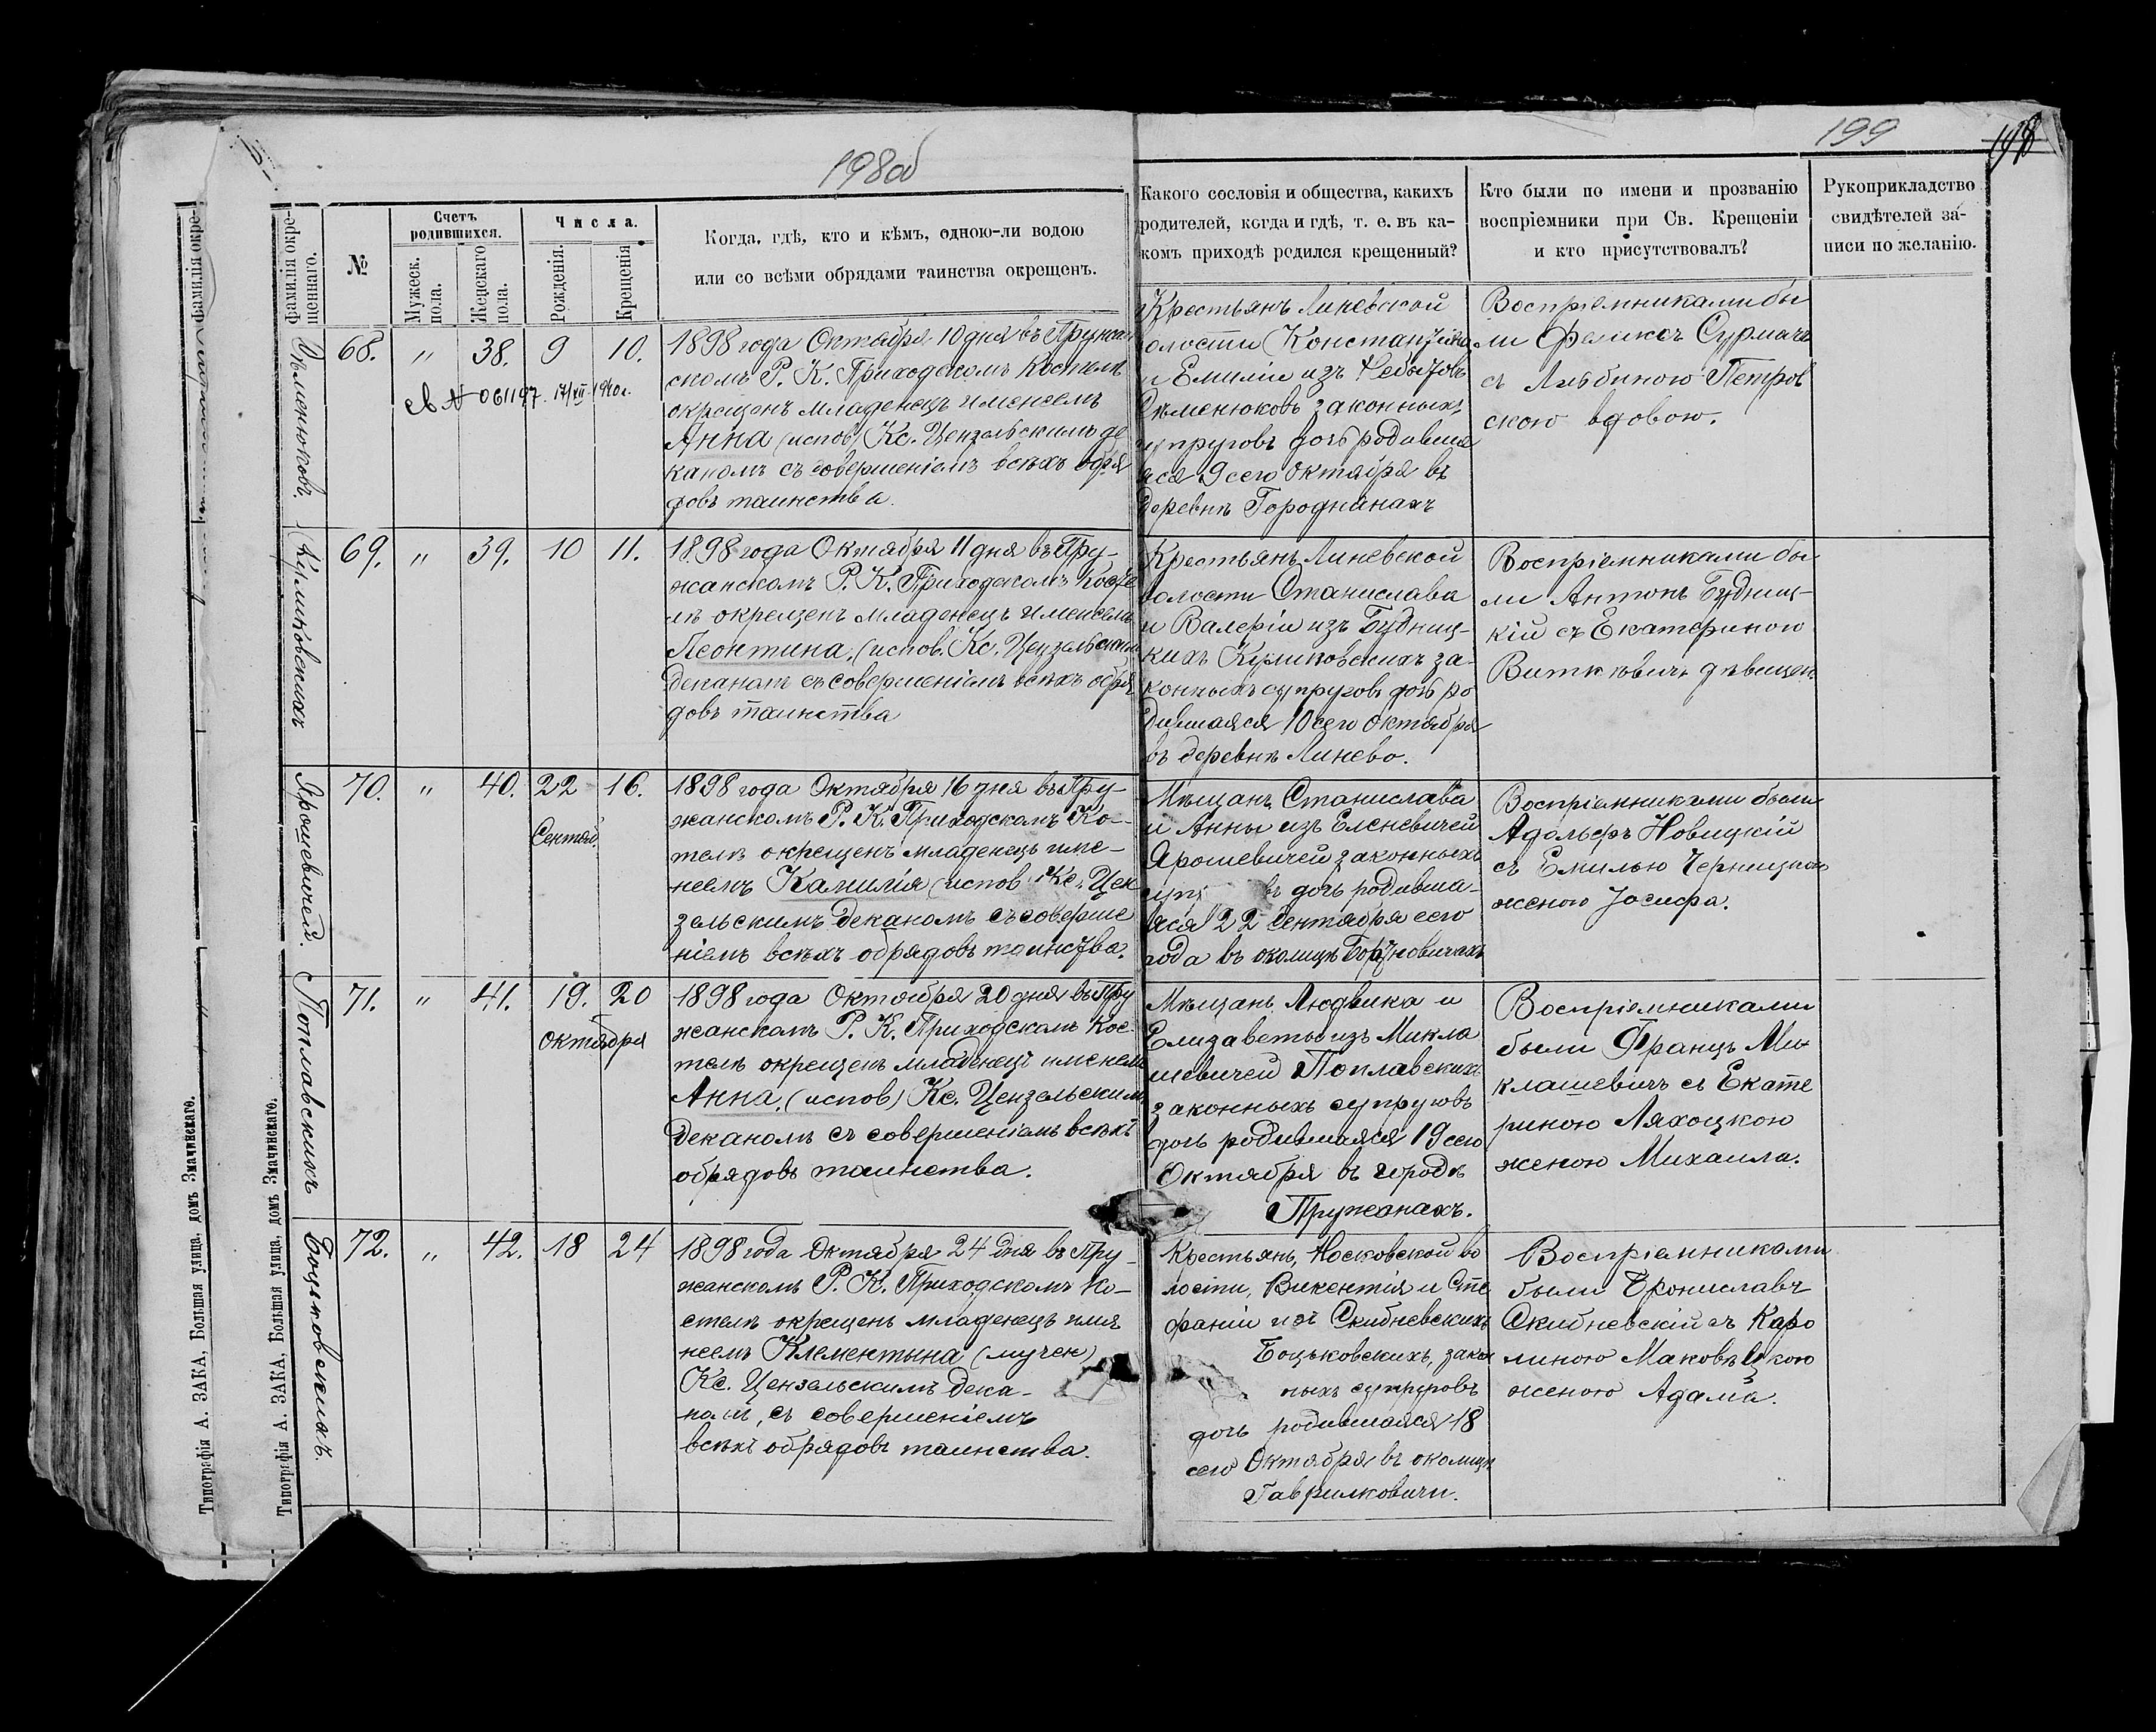 198об
199
198
Фамилія окре-
щеннаго.
№
Счетъ
родившихся.
Мужеск.
пола.
Женскаго
пола.
Числа.
Рожденія.
Крещенія.
Когда, гдѣ, кто и кѣмъ, одною-ли водою
или со всѣми обрядами таинства окрещенъ.
Какого сословія и общества, какихъ
родителей, когда и гдѣ, т. е. въ ка-
комъ приходѣ родился крещенный?
Кто были по имени и прозванію
воспріемники при Св. Крещеніи
и кто присутствовалъ?
Рукоприкладство
свидѣтелей за-
писи по желанію.
68. " 38. 9 10.
св № 061197. 17/XII-1940г.
1898 года Октября 10 дня въ Пружан
скомъ Р. К. Приходскомъ Костелѣ
окрещенъ младенецъ именемъ
Анна (испов) Кс. Цензельскимъ де
каномъ съ совершеніемъ всѣхъ обря
довъ таинства.
Крестьянъ Линевской
волости
и Емиліи изъ
законныхъ
супруговъ дочь родивша
яся 9 сего Октября въ
деревнѣ Городнянахъ
Воспріемниками бы
ли Феликсъ Сурмачъ
съ Альбиною Петров
скою вдовою.
Куликовскихъ
69. " 39. 10 11.
1898 года Октября 11 дня въ Пру-
жанскомъ Р. К. Приходскомъ Косте
лѣ окрещенъ младенецъ именемъ
Леонтина, (испов. Кс. Цензельским
деканомъ съ совершеніемъ всѣхъ обря
довъ таинства
Крестьянъ Линевской
волости Станислава
и Валеріи изъ Будниц-
кихъ Куликовскихъ за-
конныхъ супруговъ дочь ро
дившаяся 10 сего Октября
въ деревнѣ Линево.
Воспріемниками бы
ли Антонъ Будниц-
кій съ Екатериною
Виткевичъ дѣвицею
Ярошевичей.
70. " 40. 22 16.
Сентяб.
1898 года Октября 16 дня въ Пру-
жанскомъ Р. К. Приходскомъ Ко-
телѣ окрещенъ младенецъ име-
неемъ Камилія (испов. Кс. Цен
зельскимъ деканомъ съ соверше
ніемъ всѣхъ обрядовъ таинства.
Мѣщанъ Станислава
и Анны изъ Еленевичей
Ярошевичей законныхъ
дочь родивша-
яся 22 Сентября сего
года въ околицѣ
Воспріемниками были
Адольфъ Новицкій
съ Емилью Черницкою
женою Іосифа.
Поплавскихъ
71. " 41. 19. 20
Октября
1898 года Октября 20 дня въ Пру
жанскомъ Р. К. Приходскомъ Кос
телѣ окрещенъ младенецъ именемъ
Анна, (испов) Кс. Цензельскимъ
деканомъ съ совершеніемъ всѣхъ
обрядовъ таинства.
Мѣщанъ Людвика и
Елизаветы изъ Микла
шевичей Поплавскихъ
законныхъ супруговъ
дочь родившаяся 19 сего
Октября въ городѣ
Пружанахъ.
Воспріемниками
были Францъ Ми
клашевичъ съ Екате
риною Ляхоцкою
женою Михаила.
Боцьковскихъ.
72. " 42. 18 24
1898 года Октября 24 дня въ Пру-
жанскомъ Р. К. Приходскомъ Ко-
стелѣ окрещенъ младенецъ име
неемъ Клементына (мучен)
Кс. Цензельскимъ дека-
номъ, съ совершеніемъ
всѣхъ обрядовъ таинства.
Крестьянъ, Носковской во
лости, Викентія и Сте
фаніи изъ Скибневскихъ
Боцьковскихъ, закон
ныхъ супруговъ
дочь родившаяся 18
сего Октября въ околицѣ
Гаврилковичи.
Воспріемниками
были Брониславъ
Скибневскій съ Каро
линою Маковѣцкою
женою Адама.
Типографія А. ЗАКА, Большая улица, домъ Значинскаго.
Типографія А. ЗАКА, Большая улица, домъ Значинскаго.
Фамилія окре-